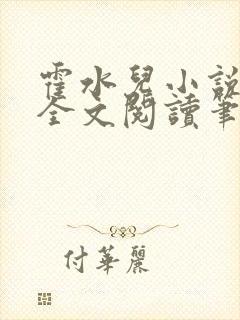 霍水兒小説
全文閱讀筆
付華麗